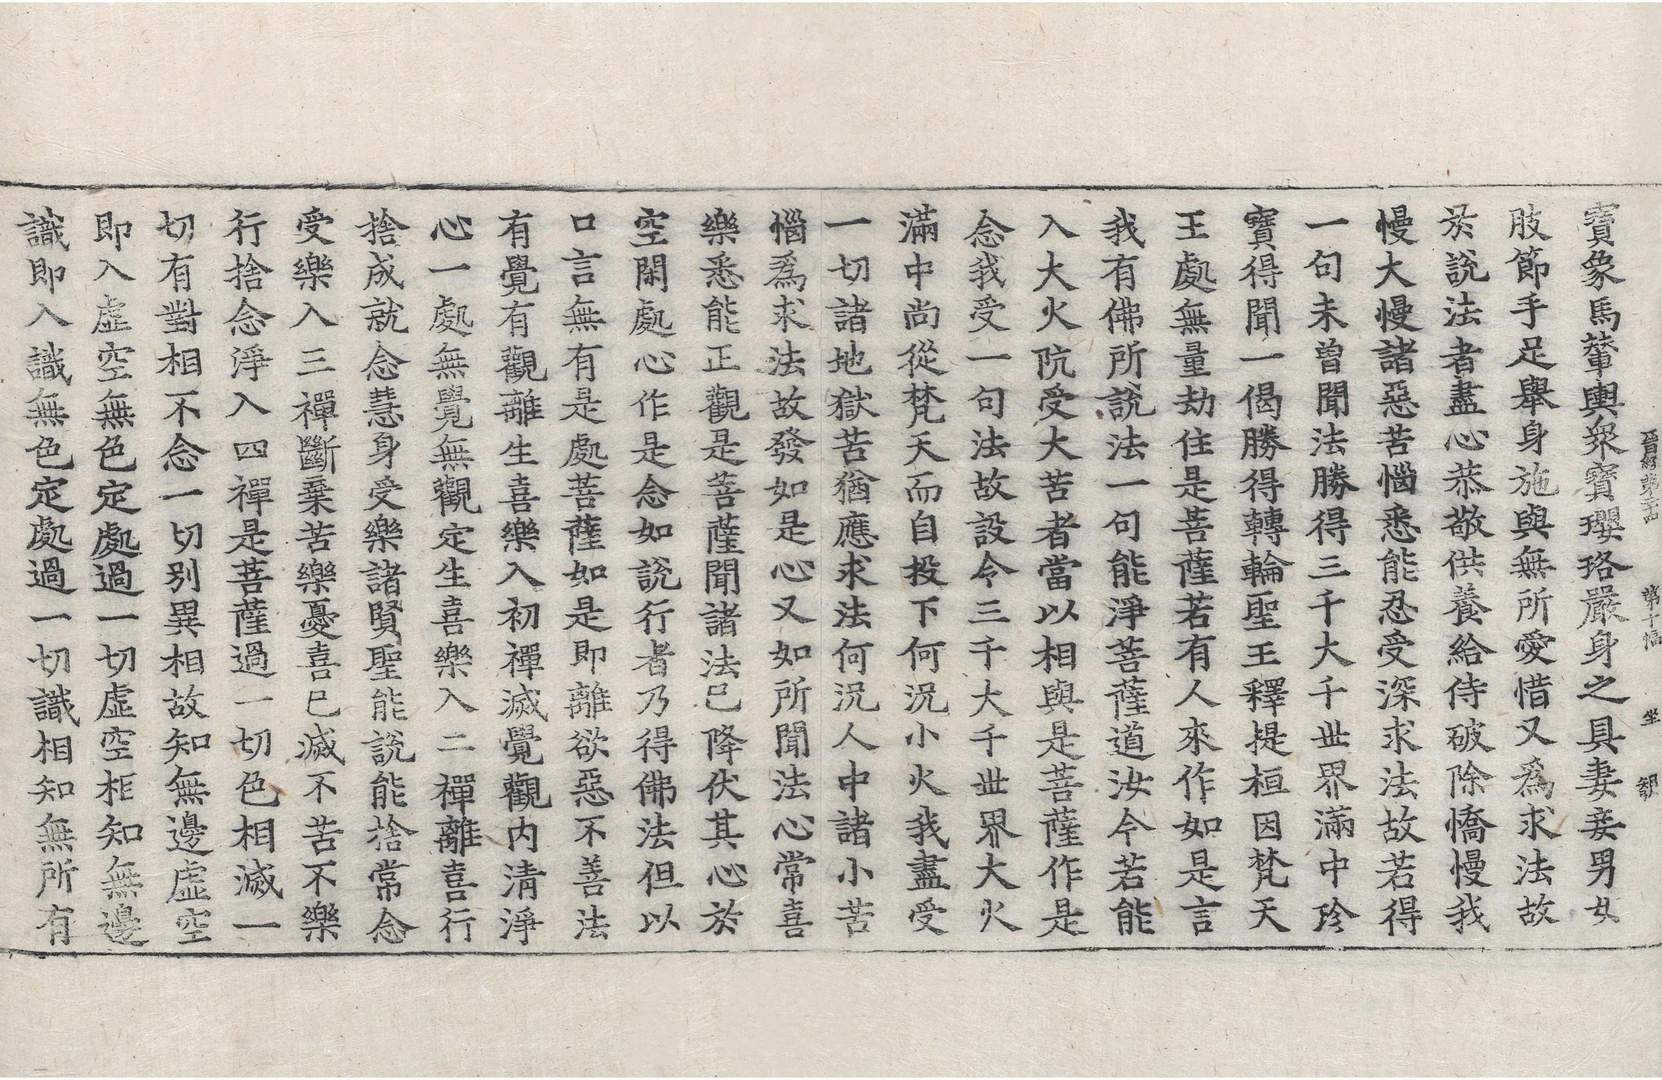 晋經第二十四 第十幅 坐 鄒
寶象馬輦輿衆寶瓔珞嚴身之具妻妾男女
肢節手足舉身施與無所愛惜又爲求法故
於說法者盡心恭敬供養給侍破除憍慢我
慢大慢諸惡苦惱悉能忍受深求法故若得
一句未曾聞法勝得三千大千世界滿中珍
寶得聞一偈勝得轉輪聖王釋提桓因梵天
王處無量劫住是菩薩若有人來作如是言
我有佛所說法一句能淨菩薩道汝今若能
入大火阬受大苦者當以相與是菩薩作是
念我受一句法故設令三千大千世界大火
滿中尚從梵天而自投下何況小火我盡受
一切諸地獄苦猶應求法何況人中諸小苦
惱爲求法故發如是心又如所聞法心常喜
樂悉能正觀是菩薩聞諸法已降伏其心於
空閑處心作是念如說行者乃得佛法但以
口言無有是處菩薩如是即離欲惡不善法
有覺有觀離生喜樂入初禪滅覺觀內清淨
心一處無覺無觀定生喜樂入二禪離喜行
捨成就念慧身受樂諸賢聖能說能捨常念
受樂入三禪斷棄苦樂憂喜已滅不苦不樂
行捨念淨入四禪是菩薩過一切色相滅一
切有對相不念一切別異相故知無邊虛空
即入虛空無色定處過一切虛空相知無邊
識即入識無色定處過一切識相知無所有